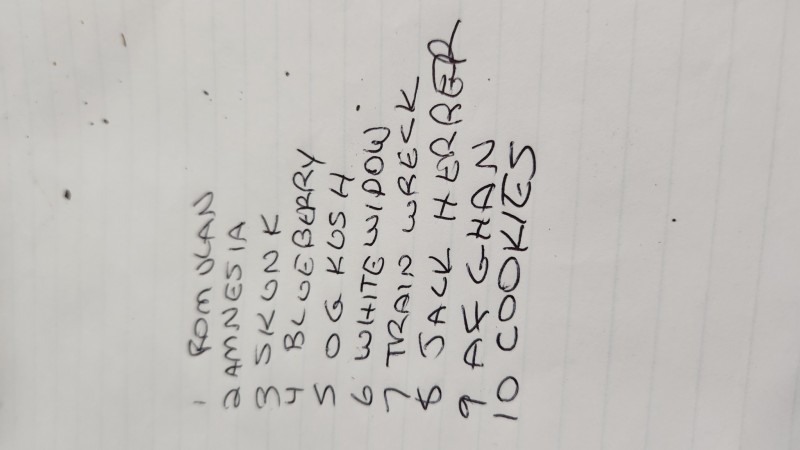 1 ROMULAN
2 AMNESIA
3 SKUNK
4 BLUEBERRY
5 OG KUSH
6 WHITE WIDOW
7 TRAIN WRECK
8 JACK HERRER
9 AFGHAN
10 COOKIES